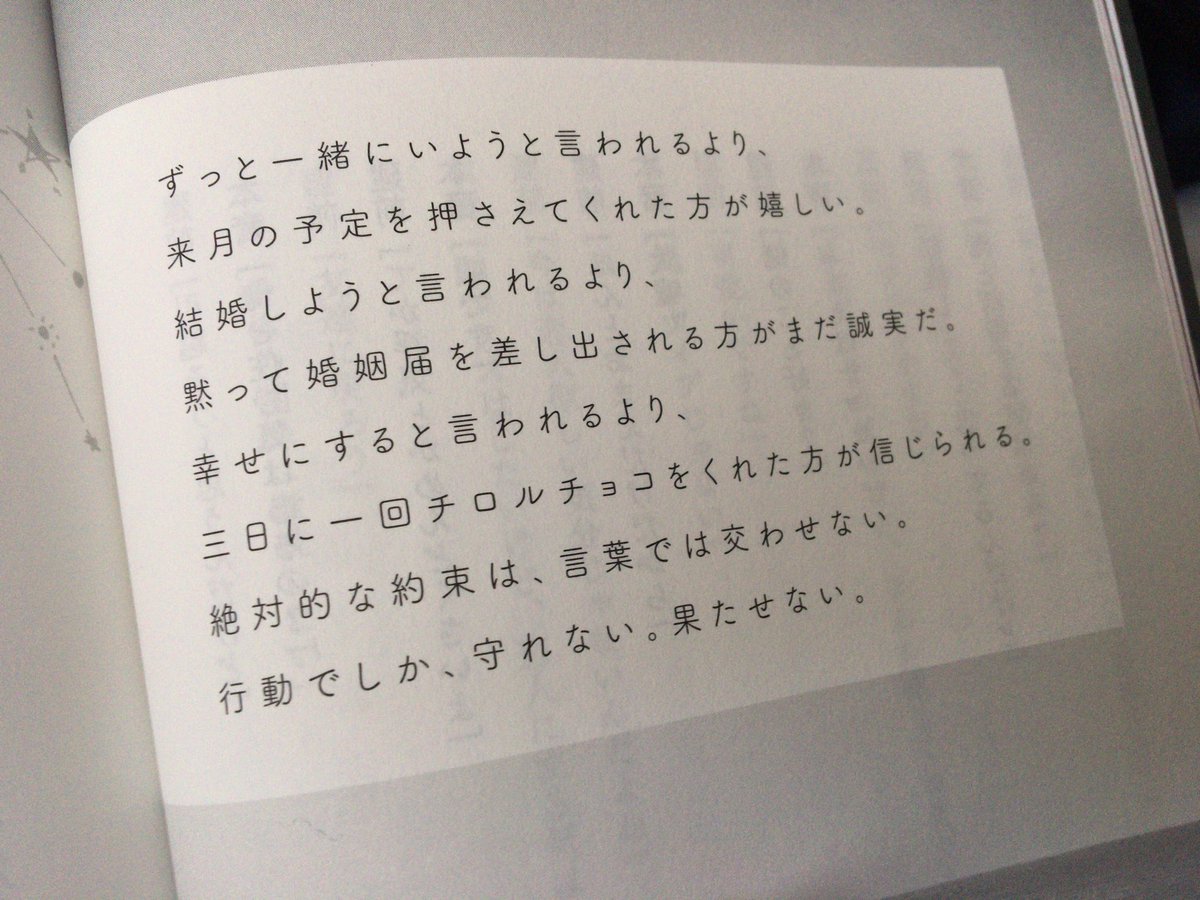 ずっと一緒にいようと言われるより、
来月の予定を押さえてくれた方が嬉しい。
結婚しようと言われるより、
黙って婚姻届を差し出される方がまだ誠実だ。
幸せにすると言われるより、
三日に一回チロルチョコをくれた方が信じられる。
絶対的な約束は、言葉では交わせない。
行動でしか、守れない。果たせない。